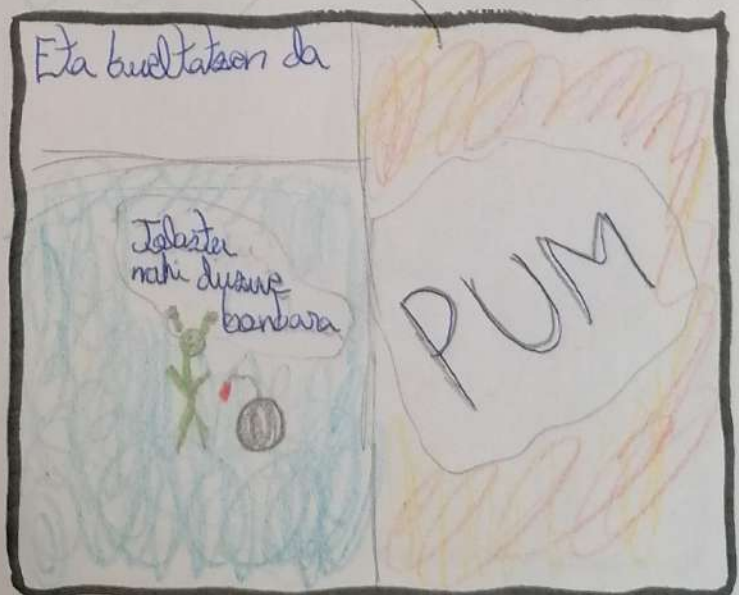 Eta bueltatzen da
Jolastu
nahi duzue
bonbara
PUM